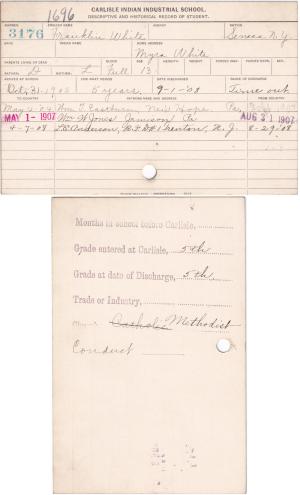 1696
CARLISLE INDIAN INDUSTRIAL SCHOOL.
DESCRIPTIVE AND HISTORICAL RECORD OF STUDENT.
NUMBER ENGLISH NAME AGENCY NATION
3176 Franklin White Seneca N.Y.
BAND INDIAN NAME HOME ADDRESS
Myra White
PARENTS LIVING OR DEAD BLOOD AGE HEIGHT WEIGHT FORCED INSP. FORCED EXPR. SEX
FATHER D MOTHER L Full 13
ARRIVED AT SCHOOL FOR WHAT PERIOD DATE DISCHARGED CAUSE OF DISCHARGE
Oct. 31, 1903 5 years 9-1-'08 Time out
TO COUNTRY PATRONS NAME AND ADDRESS FROM COUNTRY
May 2, 04 Wm T. Eastburn New Hope, Pa.
MAY 1- 1907 Wm W. Jones Jamison Pa AUG 31 1907
4-7-08 Anderson, R.F.D. #1 Trenton, N.J. 8-29-08
Months in school before Carlisle,
Grade entered at Carlisle, 5th
Grade at date of Discharge, 5th
Trade or Industry,
Catholic Methodist
Conduct